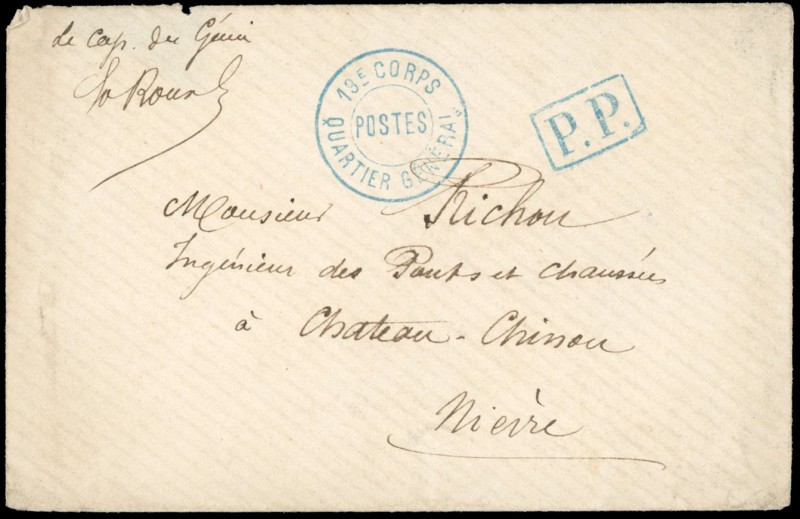 Le Cap. du Génie
13E CORPS
POSTES
QUARTIER GÉNÉRAL
P.P.
Monsieur Richou
Ingénieur des Ponts et chaussées
à Chateau-Chinon
Nièvre